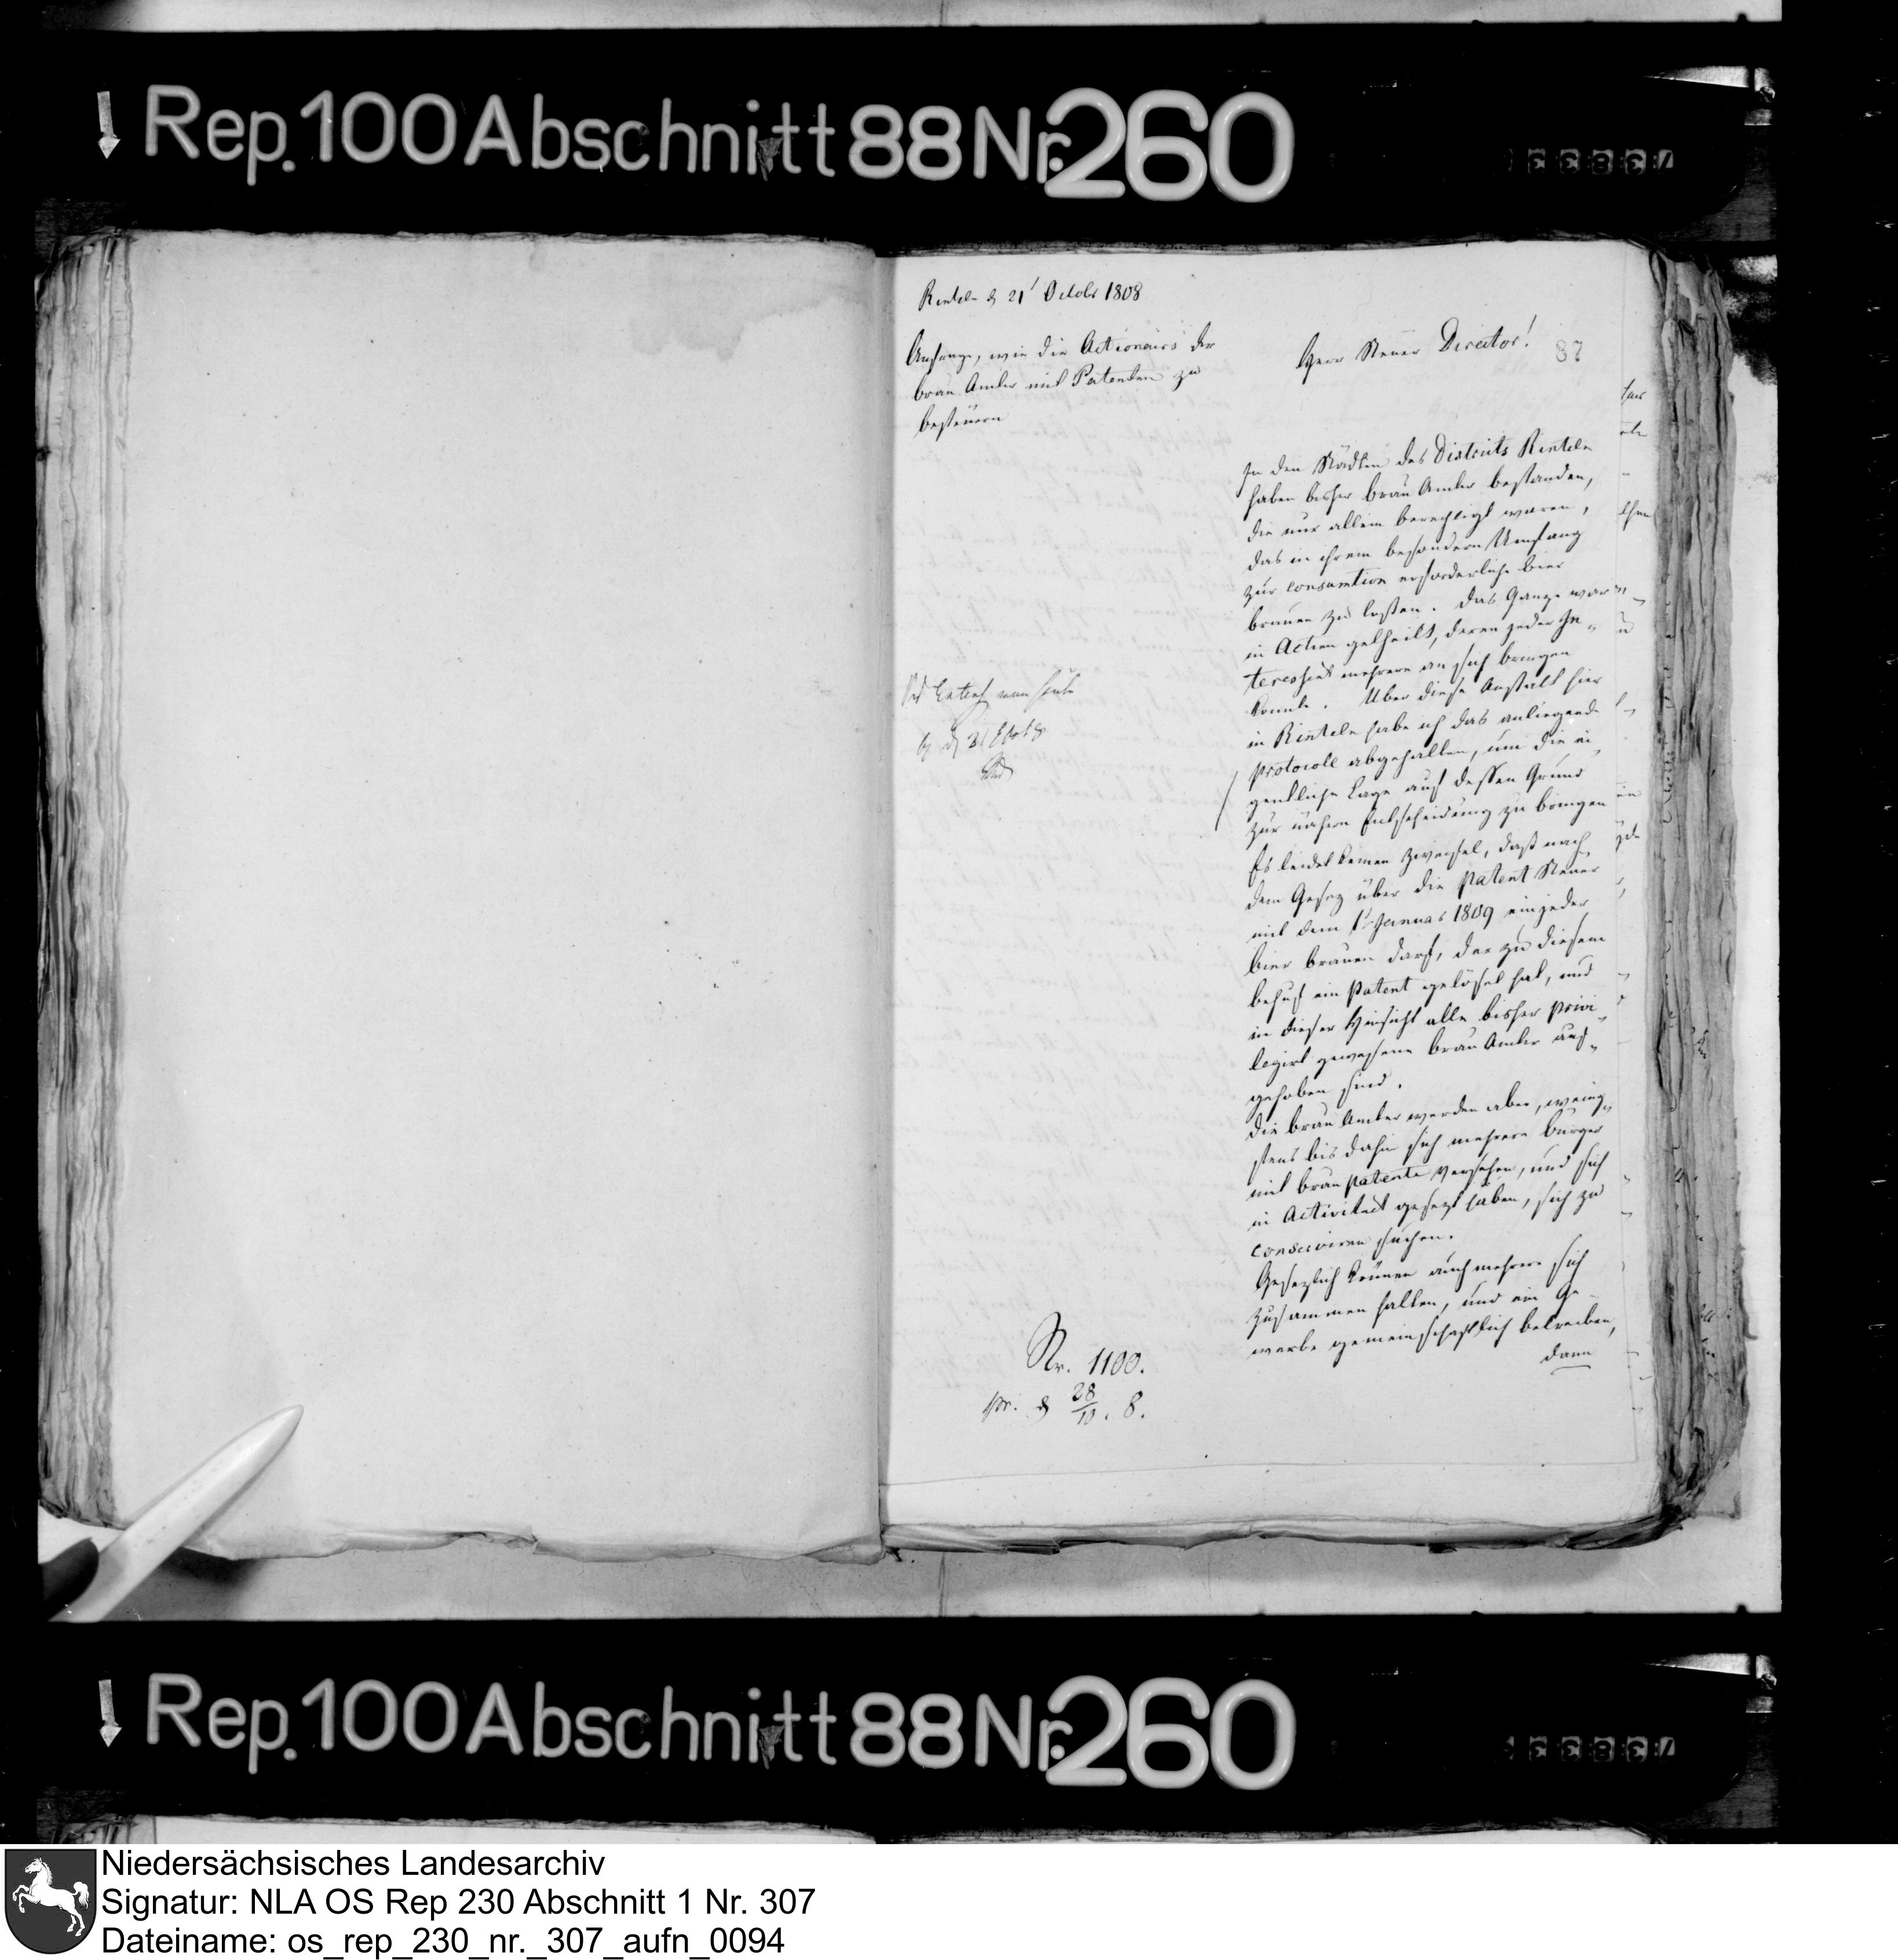 Rep. 100 Abschnitt 88 Nr. 260
Rinteln d 21' Octobr 1808
Anfrage, wie die Actionairs der
brau Amter mit Patenten zu
besteuern
Herr Steuer Director!
87
In den Städten des Districts Rinteln
haben bisher brau Amter bestanden,
die nur allein berechtigt waren,
das in ihrem besondern Umfang
zur consumtion erforderliche bier
brauen zu lassen. Das Ganze war
in Actien getheilt, deren jeder In-
teressent mehrere an sich bringen
konnte. Uber diese Anstalt hier
in Rinteln habe ich das anliegende
protocoll abgehalten, um die ei
gentliche Lage auf dessen Grund
zur nähern Entscheidung zu bringen
Es leidet keinen Zweifel, daß nach
dem Gesez über die Patent Steuer
mit dem 1' Januar 1809 einjeder
bier brauen darf, der zu diesem
behuf ein Patent gelöset hat, und
in dieser Hinsicht alle bisher privi-
legirt gewesene brau Amter auf-
gehoben sind.
Die brau Amter werden aber, wenig-
stens bis dahin sich mehrere bürger
mit brau patente versehen, und sich
in Activitaet gesezt haben, sich zu
conserviren suchen.
Gesezlich können auch mehrere sich
zusammen halten, und ein Ge-
werbe gemeinschaftlich betreiben,
dann
Nr. 1100.
pr. d 28/10. 8.
Rep. 100 Abschnitt 88 Nr. 260
Niedersächsisches Landesarchiv
Signatur: NLA OS Rep 230 Abschnitt 1 Nr. 307
Dateiname: os_rep_230_nr._307_aufn_0094